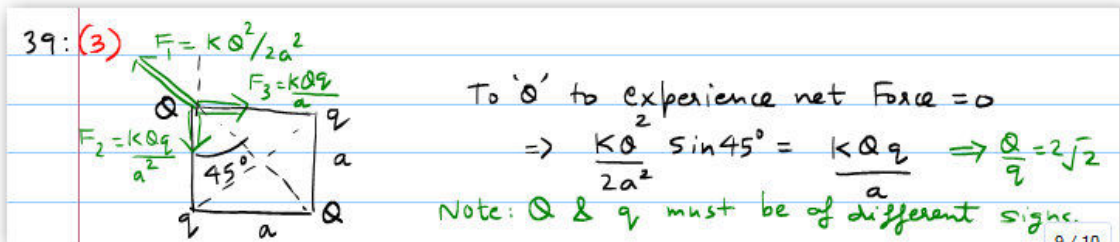 39: (3) F₁ = KQ²/2a²
F₃ = KQq/a
Q q
F₂ = KQq/a²
45° a
q a Q
To 'Q' to experience net Force = 0
=> KQ²/2a² Sin45° = KQq/a => Q/q = 2√2
Note: Q & q must be of different signs.
9 / 10